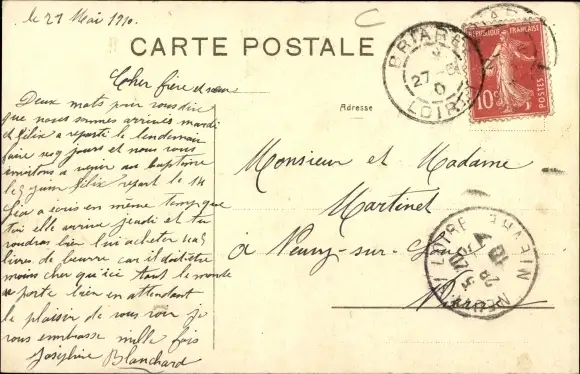 le 27 Mai 1910.
CARTE POSTALE
Cher frère et sœur
Deux mots pour vous dire
que nous sommes arrivés mardi
et félix a reparti le lendemain
faire ses jours et nous vous
invitons a venir au baptême
le 5 juin félix repart le 14
a écris en même temps que
toi elle arrive jeudi et tu
voudras bien lui acheter
livres de beurre car il doit être
moins cher qu'ici tout le monde
se porte bien en attendant
le plaisir de vous voir je
vous embrasse mille fois
Joséphine Blanchard
Adresse
Monsieur et Madame
Martinet
à Neuvy-sur-Loire
Nièvre
BRIARE
27
LOIRET
REPUBLIQUE FRANÇAISE
10c
POSTES
NEUVY S/ LOIRE
NIEVRE
28
10